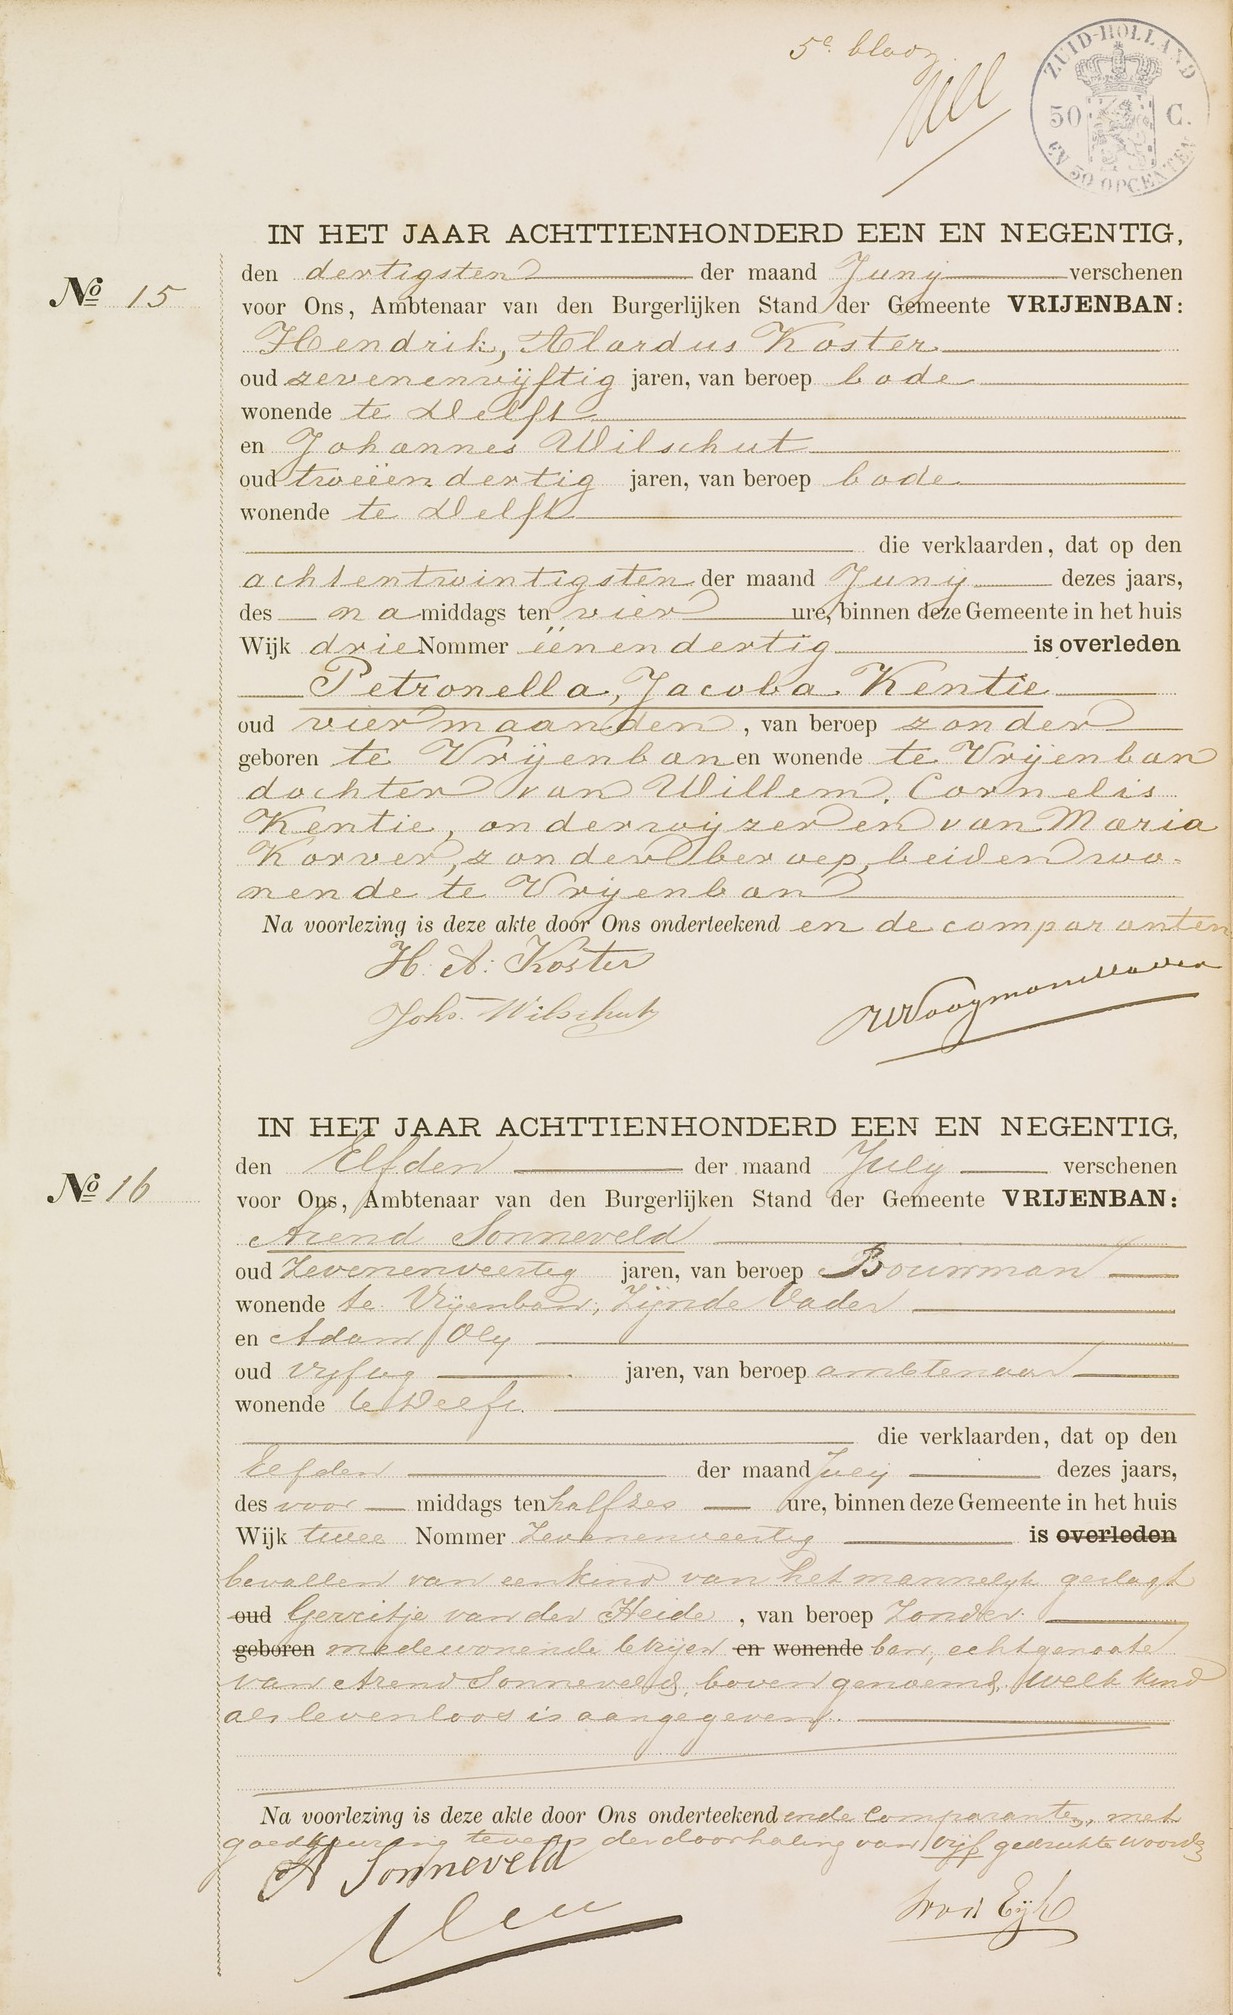 5e. bladz.
ZUID-HOLLAND
50 C.
EN 50 OPCENTEN
IN HET JAAR ACHTTIENHONDERD EEN EN NEGENTIG,
den dertigsten der maand Juny verschenen
No 15
voor Ons, Ambtenaar van den Burgerlijken Stand der Gemeente VRIJENBAN:
Hendrik, Alardus Koster
oud zevenenvijftig jaren, van beroep bode
wonende te Delft
en Johannes Wilschut
oud tweeëndertig jaren, van beroep bode
wonende te Delft
die verklaarden, dat op den
achtentwintigsten der maand Juny dezes jaars,
des na middags ten vier ure, binnen deze Gemeente in het huis
Wijk drie Nommer éénendertig is overleden
Petronella, Jacoba Kentie
oud vier maanden, van beroep zonder
geboren te Vrijenban en wonende te Vrijenban
dochter van Willem, Cornelis
Kentie, onderwijzer en van Maria
Korver, zonder beroep, beiden wo-
nende te Vrijenban
Na voorlezing is deze akte door Ons onderteekend en de comparanten
H. A. Koster
Johs. Wilschut
IN HET JAAR ACHTTIENHONDERD EEN EN NEGENTIG,
den Elfden der maand July verschenen
No 16
voor Ons, Ambtenaar van den Burgerlijken Stand der Gemeente VRIJENBAN:
Arend Sonneveld
oud Zevenenveertig jaren, van beroep Bouwman
wonende te Vrijenban, Zijnde Vader
en Adam Oly
oud vyftig jaren, van beroep ambtenaar
wonende te Delft
die verklaarden, dat op den
Elfden der maand July dezes jaars,
des voor middags ten half zes ure, binnen deze Gemeente in het huis
Wijk twee Nommer Zevenenveertig is overleden
bevallen van een kind van het mannelyk geslagt
oud Gerritje van der Heide, van beroep Zonder
geboren medewonende te Vrijen en wonende ban, echtgenoote
van Arend Sonneveld, bovengenoemd, Welk kind
als levenloos is aangegeven.
Na voorlezing is deze akte door Ons onderteekend en de Comparanten, met
goedkeuring tevens der doorhaling van vijf gedrukte woorden
A Sonneveld
van Eyk